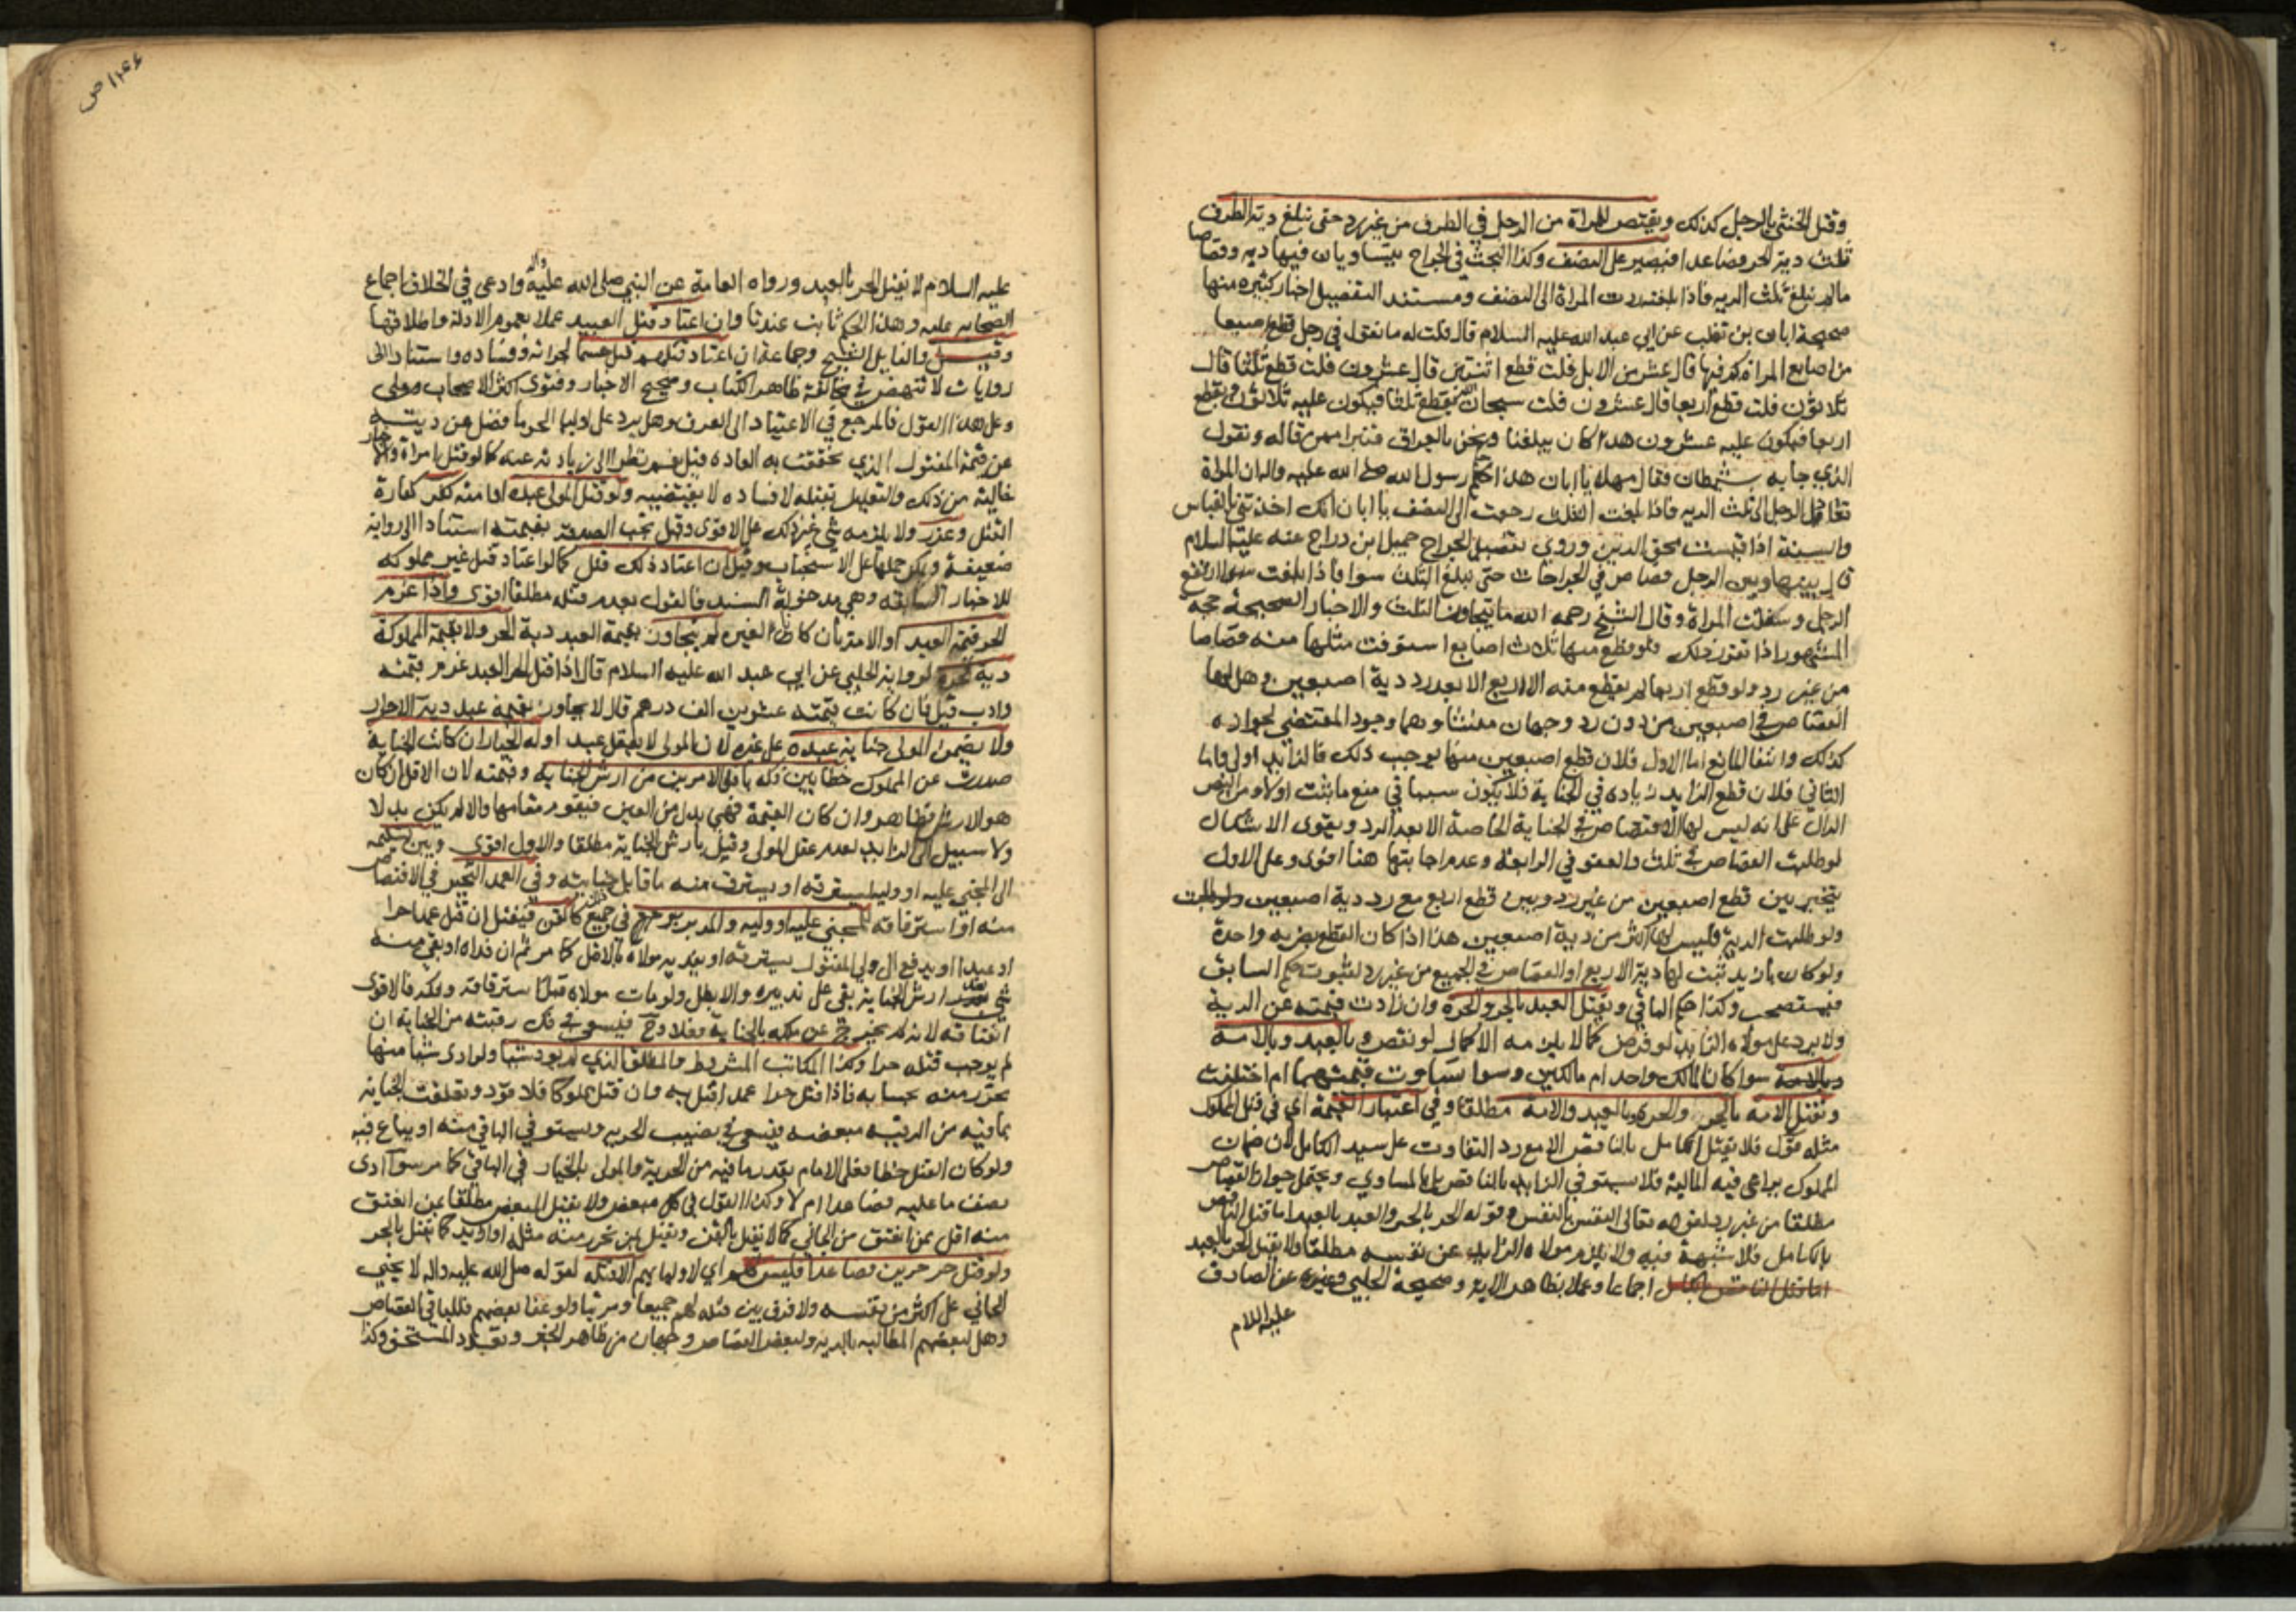 وقتل الخنثى بالرجل كذلك ويقتص للمراة من الرجل في الطرف من غير رد حتى تبلغ دية الطرف
ثلث دية الحر فصاعدا فيصير على النصف وكذا البحث في الجراح يتساويان فيها دية وقصاصا
مالم تبلغ ثلث الدية فاذا بلغته ردت المراة الى النصف ومستند التفصيل اخبار كثيرة منها
صحيحة ابان بن تغلب عن ابي عبد الله عليه السلام قال قلت له ما تقول في رجل قطع اصبعا
من اصابع المراة كم فيها قال عشر من الابل قلت قطع اثنتين قال عشرون قلت قطع ثلثا قال
ثلاثون قلت قطع اربعا قال عشرون قلت سبحان الله يقطع ثلثا فيكون عليه ثلاثون ويقطع
اربعا فيكون عليه عشرون هذا كان يبلغنا ونحن بالعراق فنبرا ممن قاله ونقول
الذي جا به شيطان فقال مهلا يا ابان هذا حكم رسول الله صلى الله عليه واله ان المراة
تعاقل الرجل الى ثلث الدية فاذا بلغت الثلث رجعت الى النصف يا ابان انك اخذتني بالقياس
والسنة اذا قيست محق الدين وروي تفصيل الجراح جميل ابن دراج عنه عليه السلام
قال بينها وبين الرجل قصاص في الجراحات حتى تبلغ الثلث سوا فاذا بلغت سوا ارتفع
الرجل وسفلت المراة وقال الشيخ رحمه الله ما يتجاوز الثلث والاخبار الصحيحة حجة
المشهور اذا تقرر ذلك فلو قطع منها ثلاث اصابع استوفت مثلها منه قصاصا
من غير رد ولو قطع اربعا لم يقطع منه الاربع الا بعد رد دية اصبعين وهل لها
القصاص في اصبعين من دون رد وجهان منشاوهما وجود المقتضي لجوازه
كذلك وانتفا المانع اما الاول فلان قطع اصبعين منها يوجب ذلك فالزايد اولى واما
الثاني فلان قطع الزايد زيادة في الجناية فلا يكون سببا في منع ما ثبت اولا ومن النص
الدال على انه ليس لها الاقتصاص في الجناية الخاصة الا بعد الرد ويقوى الاشكال
لو طلبت القصاص في ثلث والعفو في الرابعة وعدم اجابتها هنا اقوى وعلى الاول
يتخير بين قطع اصبعين من غير رد وبين قطع اربع مع رد دية اصبعين
ولو طلبت الدية فليس لها اكثر من دية اصبعين هذا اذا كان القطع بضربة واحدة
ولو كان بازيد ثبت لها دية الاربع او القصاص في الجميع من غير رد لثبوت حكم السابق
فيستصحب وكذا حكم الباقي ويقتل العبد بالحر والحرة وان زادت قيمته عن الدية
ولا يرد على مولاه الزايد لو فرض كما لا يلزمه الاكمال لو نقص وبالعبد وبالامة
وبالامة سوا كان المالك واحد ام مالكين وسوا تساوت قيمتهما ام اختلفت
وتقتل الامة بالحر والحرة وبالعبد والامة مطلقا وفي اعتبار القيمة اي في قتل المملوك
مثله قول فلا يقتل الكامل بالناقص الا مع رد التفاوت على سيد الكامل لان ضمان
المملوك يراعى فيه المالية فلا يستوفي الزايد بالناقص بل بالمساوي ويحتمل جواز القصاص
مطلقا من غير رد لقوله تعالى النفس بالنفس وقوله الحر بالحر والعبد بالعبد اما قتل الناقص
بالكامل فلا شبهة فيه ولا يلزم مولاه الزايد عن نفسه مطلقا ولا يقتل الحر بالعبد
اما قتل الناقص بالكامل اجماعا وعملا بظاهر الاية وصحيحة الحلبي وغيره عن الصادق
عليه السلام
١٣٤٤ ص
عليه السلام لا يقتل الحر بالعبد ورواه العامة عن النبي صلى الله عليه واله وادعى في الخلاف اجماع
الصحابة عليه وهذا الحكم ثابت عندنا وان اعتاد قتل العبيد عملا بعموم الادلة واطلاقها
وقيل والقايل الشيخ وجماعة ان اعتاد قتلهم قتل حسما لجراته وفساده واستنادا الى
روايات لا تنهض في مخالفة ظاهر الكتاب وصحيح الاخبار وفتوى اكثر الاصحاب
وعلى هذا القول فالمرجع في الاعتياد الى العرف وهل يرد على اوليا الحر ما فضل من ديته
عن قيمة المقتول الذي تحققت به العادة قيل نعم نظرا الى زيادته عنه كما لو قتل امراة والاخبار
خالية من ذلك والتعليل بقتله لافساده لا يقتضيه ولو قتل المولى عبده او امته كفر كفارة
القتل وعزر ولا يلزمه شي غير ذلك على الاقوى وقيل تجب الصدقة بقيمته استنادا الى رواية
ضعيفة ويمكن حملها على الاستحباب وقيل ان اعتاد ذلك قتل كما لو اعتاد قتل غير مملوكه
للاخبار السابقة وهي مدخولة السند فالقول بعدم قتله مطلقا اقوى واذا غرم
الحر قيمة العبد او الامة بان كانا لغيره لم يتجاوز بقيمة العبد دية الحر ولا بقيمة المملوكة
دية الحرة لرواية الحلبي عن ابي عبد الله عليه السلام قال اذا قتل الحر العبد غرم قيمته
وادب قيل فان كانت قيمته عشرين الف درهم قال لا يجاوز بقيمة عبد دية الاحرار
ولا يضمن المولى جناية عبده على غيره لان المولى لا يعقل عبدا وله الخيار ان كانت الجناية
صدرت عن المملوك خطا بين فكه باقل الامرين من ارش الجناية وقيمته لان الاقل ان كان
هو الارش فظاهر وان كان القيمة فهي بدل من العين فيقوم مقامها والا لم يكن بدلا
ولا سبيل الى الزايد لعدم عقل المولى وقيل بارش الجناية مطلقا والاول اقوى وبين تسليمه
الى المجني عليه او وليه ليسترقه او يسترق منه ما قابل جنايته وفي العمد التخيير في الاقتصاص
منه او استرقاقه للمجني عليه او وليه والمدبر في جميع ذلك كالقن فيقتل ان قتل عمدا حرا
او عبدا او يدفع الى ولي المقتول يسترقه او يفديه مولاه بالاقل كما مر ثم ان فداه او بقي منه
شي بعد ارش الجناية بقي على تدبيره والا بطل ولو مات مولاه قبل استرقاقه وفكه فالاقوى
انعتاقه لانه لم يخرج عن ملكه بالجناية وح فيسعى في فك رقبته من الجناية ان
لم يوجب قتله حرا وكذا المكاتب المشروط والمطلق الذي لم يود شيا ولو ادى شيا منها
تحرر منه بحسابه فاذا قتل حرا عمدا قتل به وان قتل مملوكا فلا قود وتعلقت الجناية
بما فيه من الرقية مبعضه فيسعى في نصيب الحرية ويستوفي الباقي منه او يباع فيه
ولو كان القتل خطا فعلى الامام بقدر ما فيه من الحرية والمولى بالخيار في الباقي كما مر سوا ادى
نصف ما عليه فصاعدا ام لا وكذا القول في كل مبعض ولا يقتل المبعض مطلقا بمن انعتق
منه اقل ممن انعتق من الجاني كما لا يقتل بالقن ويقتل بمن تحرر منه مثله او ازيد كما يقتل بالحر
ولو قتل حر حرين فصاعدا فليس لهم اي لاوليايهم الا قتله لقوله صلى الله عليه واله لا يجني
الجاني على اكثر من نفسه ولا فرق بين قتله لهم جميعا ومرتبا ولو عفا بعضهم فللباقي القصاص
وهل لبعضهم المطالبة بالدية ولبعض القصاص وجهان من ظاهر الخبر وتعدد المستحق وكذا